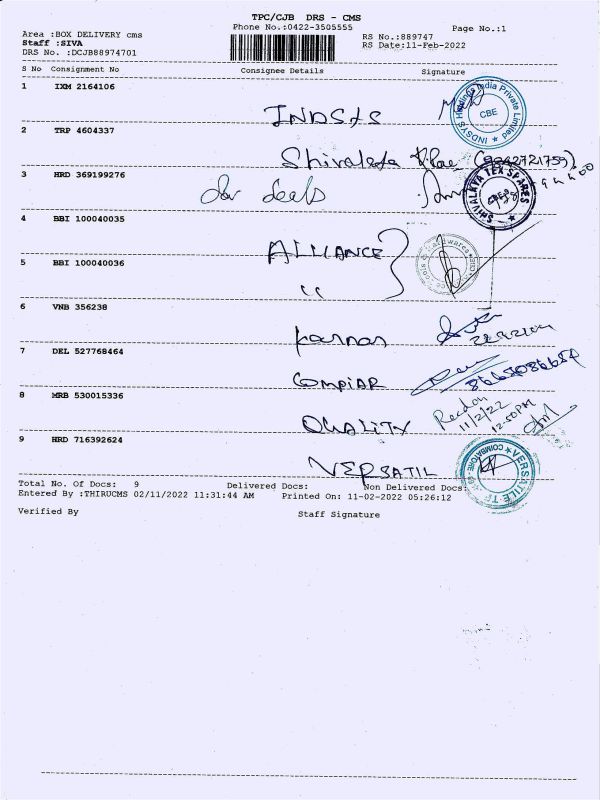 TPC/CJB DRS - CMS
Phone No.:0422-3505555
Page No.:1
Area :BOX DELIVERY cms
RS No.:889747
Staff :SIVA
RS Date:11-Feb-2022
DRS No. :DCJB88974701
S No Consignment No Consignee Details Signature
1 IXM 2164106
INDSYS
INDSYS Holdings India Private Limited
CBE
2 TRP 4604337
Shivalaya (9842721759)
SHIVALAYA TEX SPARES
3 HRD 369199276
deals
4 BBI 100040035
ALLIANCE
5 BBI 100040036
"
6 VNB 356238
Kannan
7 DEL 527768464
COMPIAR
8 MRB 530015336
QUALITY
Recd on
11/2/22
12.50PM
9 HRD 716392624
VERSATIL
VERSATILE
COIMBATORE
Total No. Of Docs: 9 Delivered Docs: Non Delivered Docs:
Entered By :THIRUCMS 02/11/2022 11:31:44 AM Printed On: 11-02-2022 05:26:12
Verified By Staff Signature